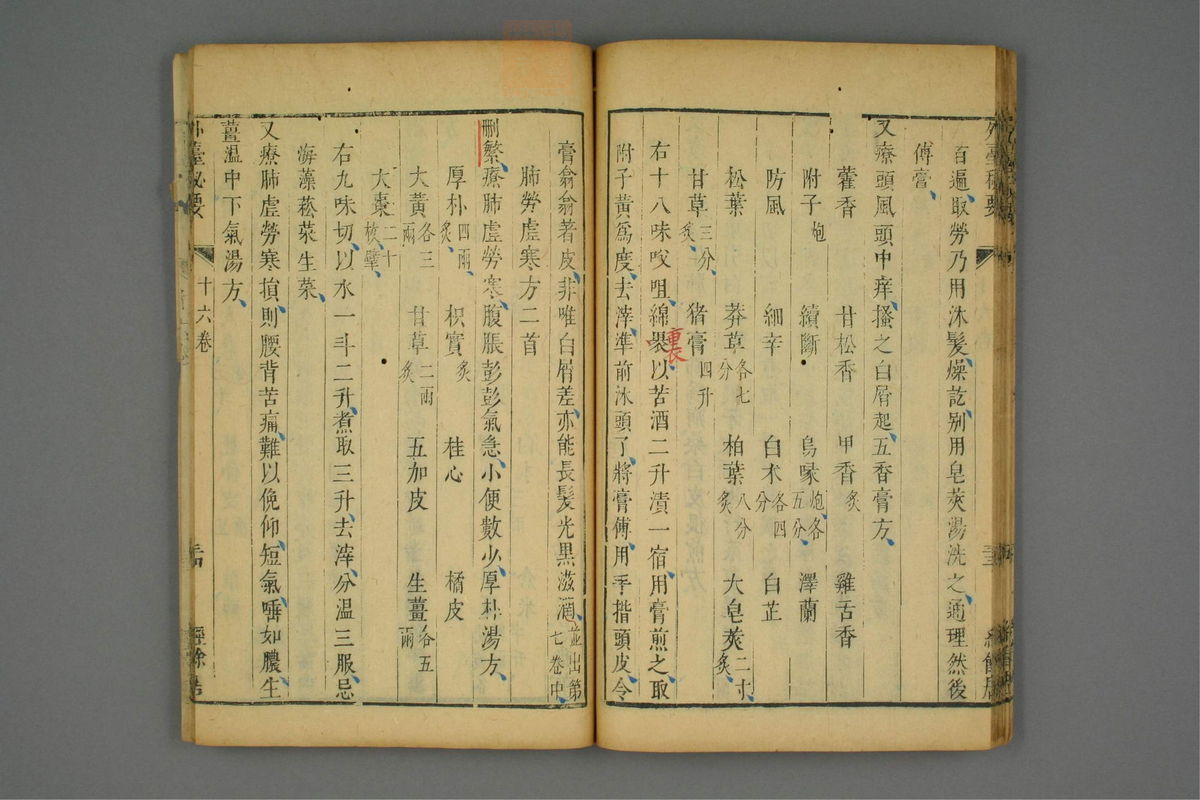 百遍取勞乃用沐髮燥訖别用皂莢湯洗之通理然後
傅膏
又療頭風頭中痒搔之白屑起五香膏方
藿香 甘松香 甲香炙 雞舌香
附子炮 續斷 烏喙炮各五分 澤蘭
防風 細辛 白术各四分 白芷
松葉 莽草各七分 柏葉八分炙 大皂莢二寸炙
甘草三分炙 猪膏四升
右十八味㕮咀綿裹以苦酒二升漬一宿用膏煎之取
附子黄爲度去滓準前沐頭了將膏傅用手揩頭皮令
裏
膏翕翕著皮非唯白屑差亦能長髮光黑滋潤並出第七卷中
肺勞虛寒方二首
刪繁療肺虛勞寒腹脹彭彭氣急小便數少厚朴湯方
厚朴四兩炙 枳實炙 桂心 橘皮
大黄各三兩 甘草二兩炙 五加皮 生薑各五兩
大棗二十枚擘
右九味切以水一斗二升煮取三升去滓分温三服忌
海藻菘菜生菜
又療肺虛勞寒損則腰背苦痛難以俛仰短氣唾如膿生
薑温中下氣湯方
外臺秘要 十六卷 經餘居